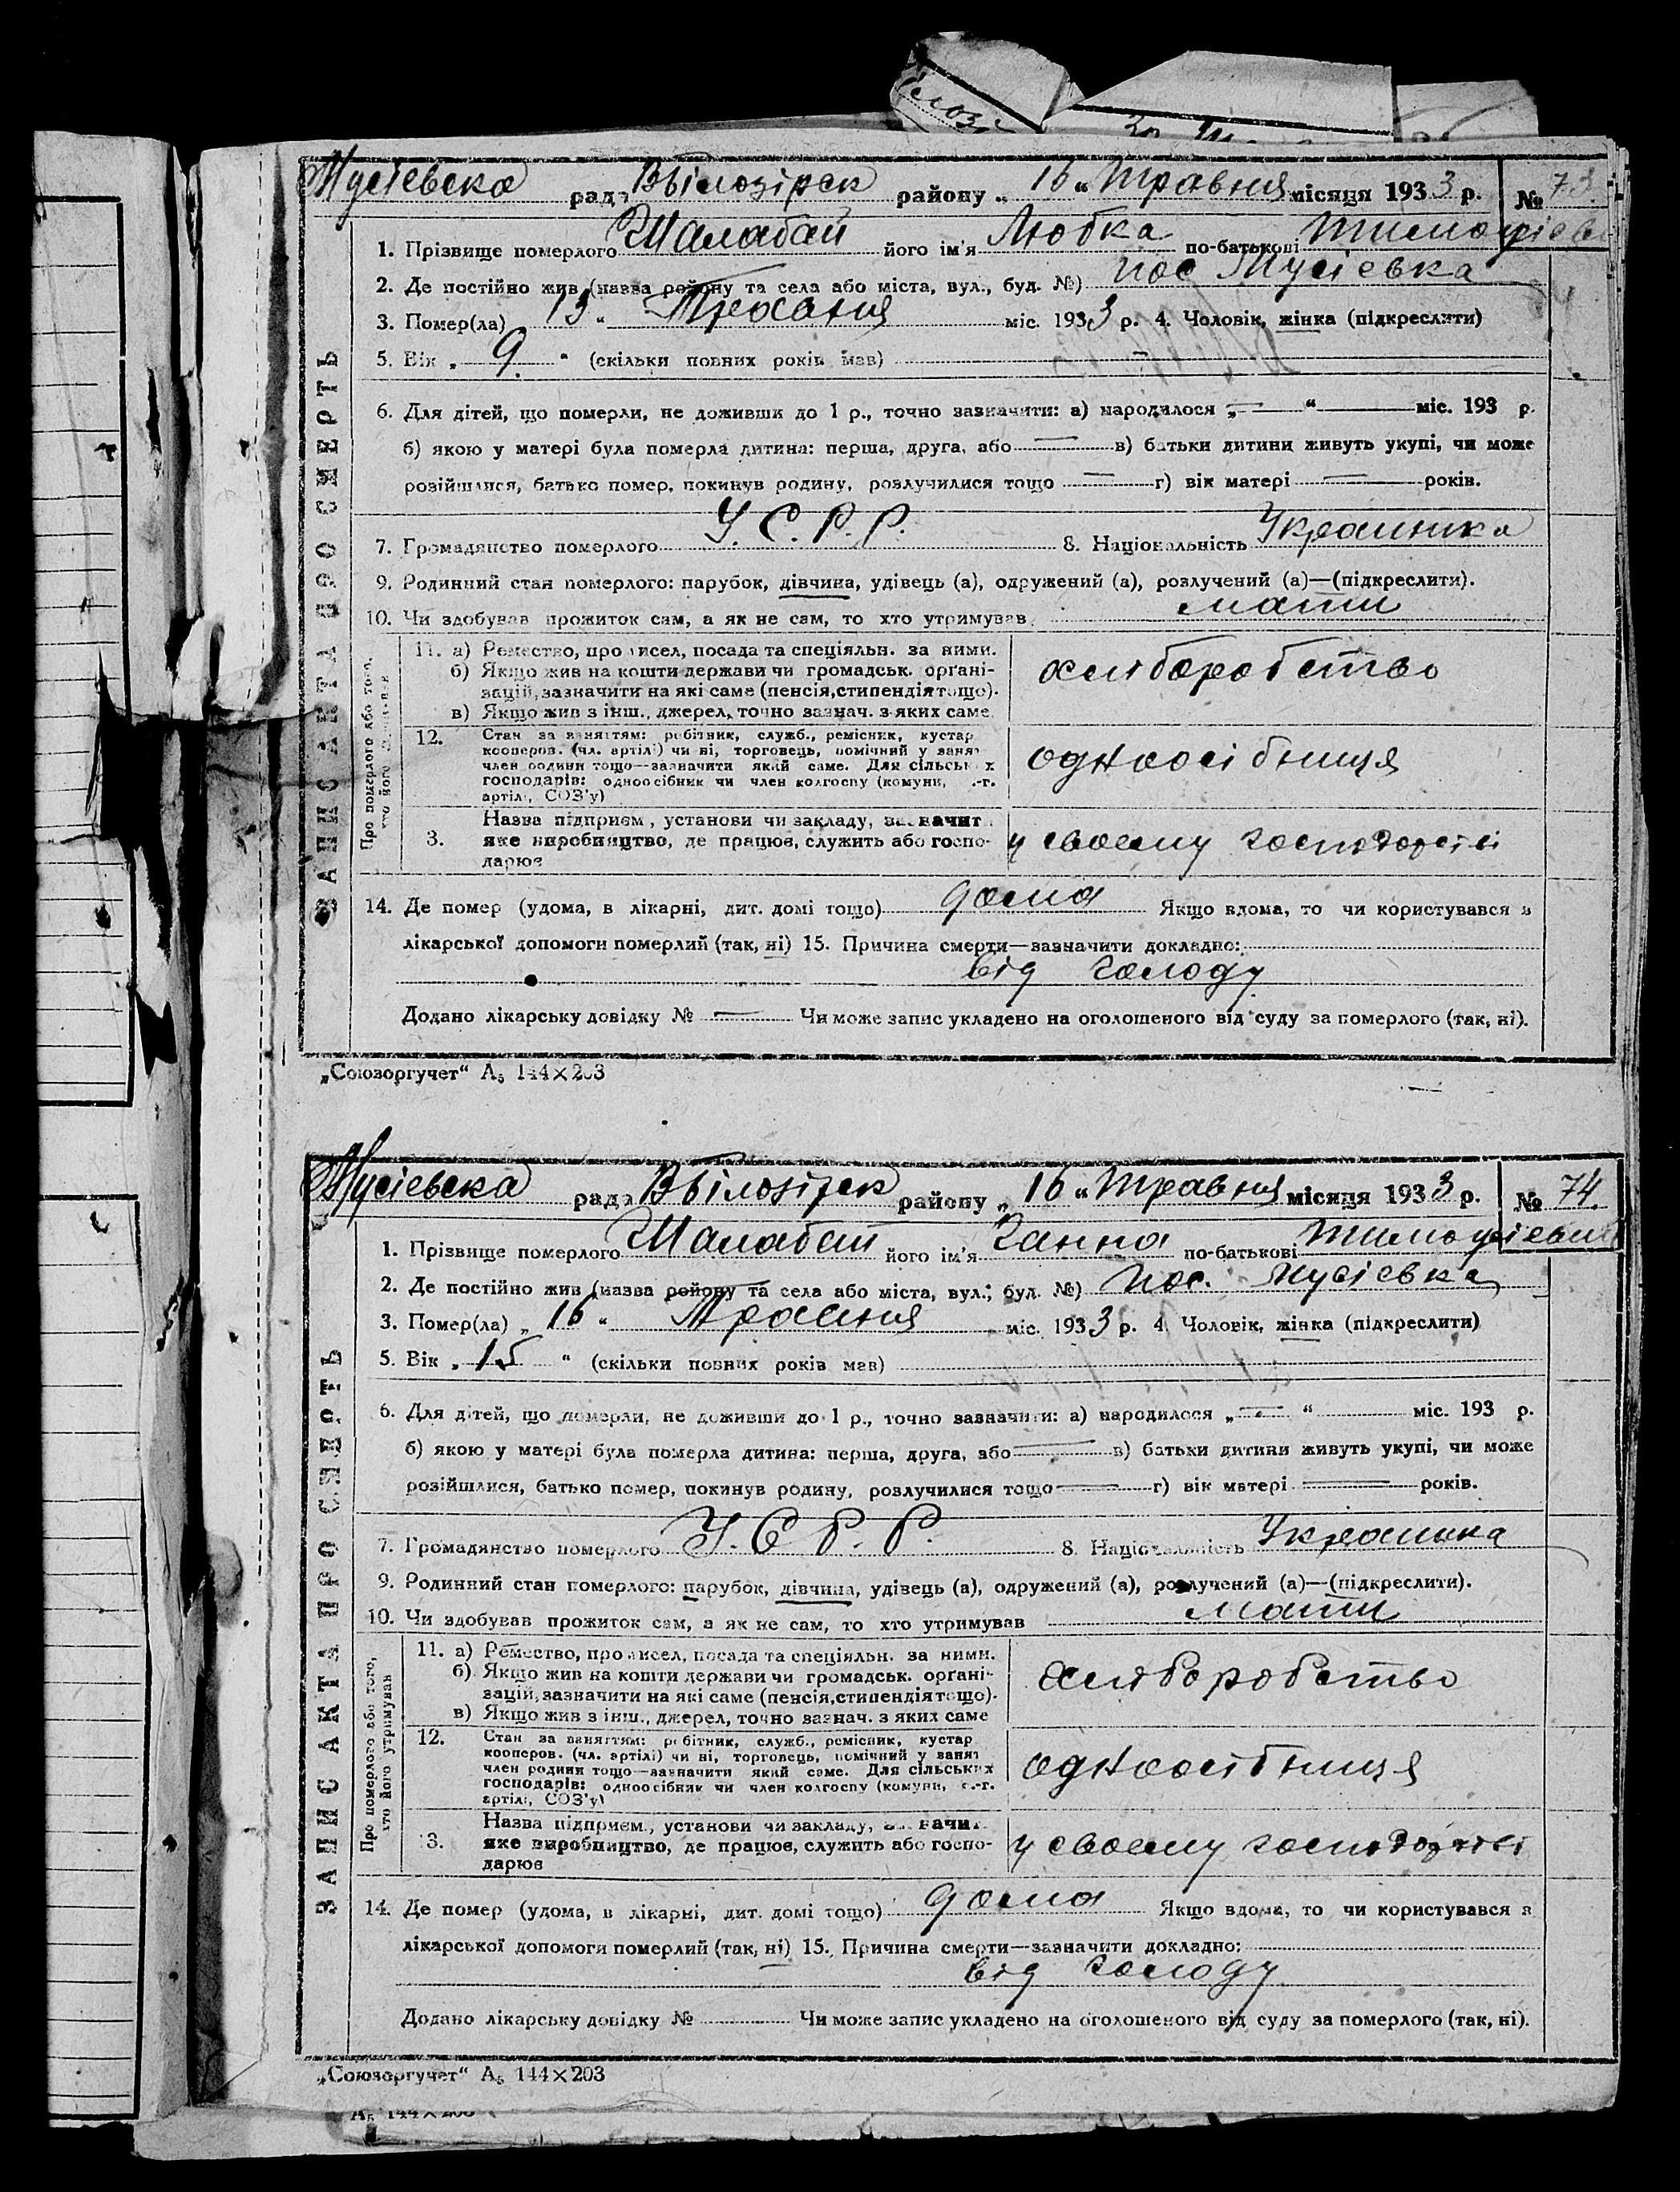 Мусіевска рада Вбілозірск району „ 16 “ Травня місяця 1933 р. № 73.
1. Прізвище померлого Шалабай його ім'я Любка по-батькові Тимофіев
2. Де постійно жив (назва району та села або міста, вул., буд. №) пос Мусіевка
3. Помер(ла) 13 “ Травня міс. 1933 р. 4. Чоловік, жінка (підкреслити)
5. Вік „ 9. “ (скільки повних років мав) —
6. Для дітей, що померли, не доживши до 1 р., точно зазначити: а) народилося „ — “ міс. 193 р.
б) якою у матері була померла дитина: перша, друга, або — в) батьки дитини живуть укупі, чи може
розійшлися, батько помер, покинув родину, розлучилися тощо — г) вік матері — років.
7. Громадянство померлого У. С. Р. Р. 8. Національність Украинка
9. Родинний стан померлого: парубок, дівчина, удівець (а), одружений (а), розлучений (а)—(підкреслити).
10. Чи здобував прожиток сам, а як не сам, то хто утримував мати
ЗАПИС АКТА ПРО СМЕРТЬ
Про померлого або того,
хто його
11. а) Ремество, промисел, посада та спеціяльн. за ними.
б) Якщо жив на кошти держави чи громадськ. органі-
зацій, зазначити на які саме (пенсія, стипендія тощо).
в) Якщо жив з інш., джерел, точно зазнач. з яких саме
хліборобство
12. Стан за заняттям: робітник, служб., ремісник, кустар
кооперов. (чл. артілі) чи ні, торговець, помічний у занят
член родини тощо—зазначити який саме. Для сільських
господарів: одноосібник чи член колгоспу (комуни, с.-г.
артілі, СОЗ'у)
одноосібниця
3. Назва підприєм., установи чи закладу, зазначит
яке виробництво, де працює, служить або госпо-
дарює
у своему господорсті
14. Де помер (удома, в лікарні, дит. домі тощо) дома Якщо вдома, то чи користувався з
лікарської допомоги померлий (так, ні) 15. Причина смерти—зазначити докладно:
від голоду
Додано лікарську довідку № — Чи може запис укладено на оголошеного від суду за померлого (так, ні).
„Союзоргучет“ А₅ 144×203
Мусіевска рада Вбілозірск району „ 16 “ Травня місяця 1933 р. № 74.
1. Прізвище померлого Шалабай його ім'я Ганна по-батькові Тимофіевна
2. Де постійно жив (назва району та села або міста, вул., буд. №) пос. Мусіевка
3. Помер(ла) „ 16 “ Травня міс. 1933 р. 4. Чоловік, жінка (підкреслити)
5. Вік „ 15 “ (скільки повних років мав)
6. Для дітей, що померли, не доживши до 1 р., точно зазначити: а) народилося „ — “ міс. 193 р.
б) якою у матері була померла дитина: перша, друга, або — в) батьки дитини живуть укупі, чи може
розійшлися, батько помер, покинув родину, розлучилися тощо — г) вік матері — років.
7. Громадянство померлого У. С. Р. Р. 8. Національність Украинка
9. Родинний стан померлого: парубок, дівчина, удівець (а), одружений (а), розлучений (а)—(підкреслити).
10. Чи здобував прожиток сам, а як не сам, то хто утримував мати
ЗАПИС АКТА ПРО СМЕРТЬ
Про померлого або того,
хто його утримував
11. а) Ремество, промисел, посада та спеціяльн. за ними.
б) Якщо жив на кошти держави чи громадськ. органі-
зацій, зазначити на які саме (пенсія, стипендія тощо).
в) Якщо жив з інш., джерел, точно зазнач. з яких саме
хліборобство
12. Стан за заняттям: робітник, служб., ремісник, кустар
кооперов. (чл. артілі) чи ні, торговець, помічний у занят
член родини тощо—зазначити який саме. Для сільських
господарів: одноосібник чи член колгоспу (комуни, с.-г.
артілі, СОЗ'у)
одноосібниця
3. Назва підприєм., установи чи закладу, зазначит
яке виробництво, де працює, служить або госпо-
дарює
у своему господорсті
14. Де помер (удома, в лікарні, дит. домі тощо) дома Якщо вдома, то чи користувався з
лікарської допомоги померлий (так, ні) 15. Причина смерти—зазначити докладно:
від голоду
Додано лікарську довідку № Чи може запис укладено на оголошеного від суду за померлого (так, ні).
„Союзоргучет“ А₅ 144×203
А₅ 144×203